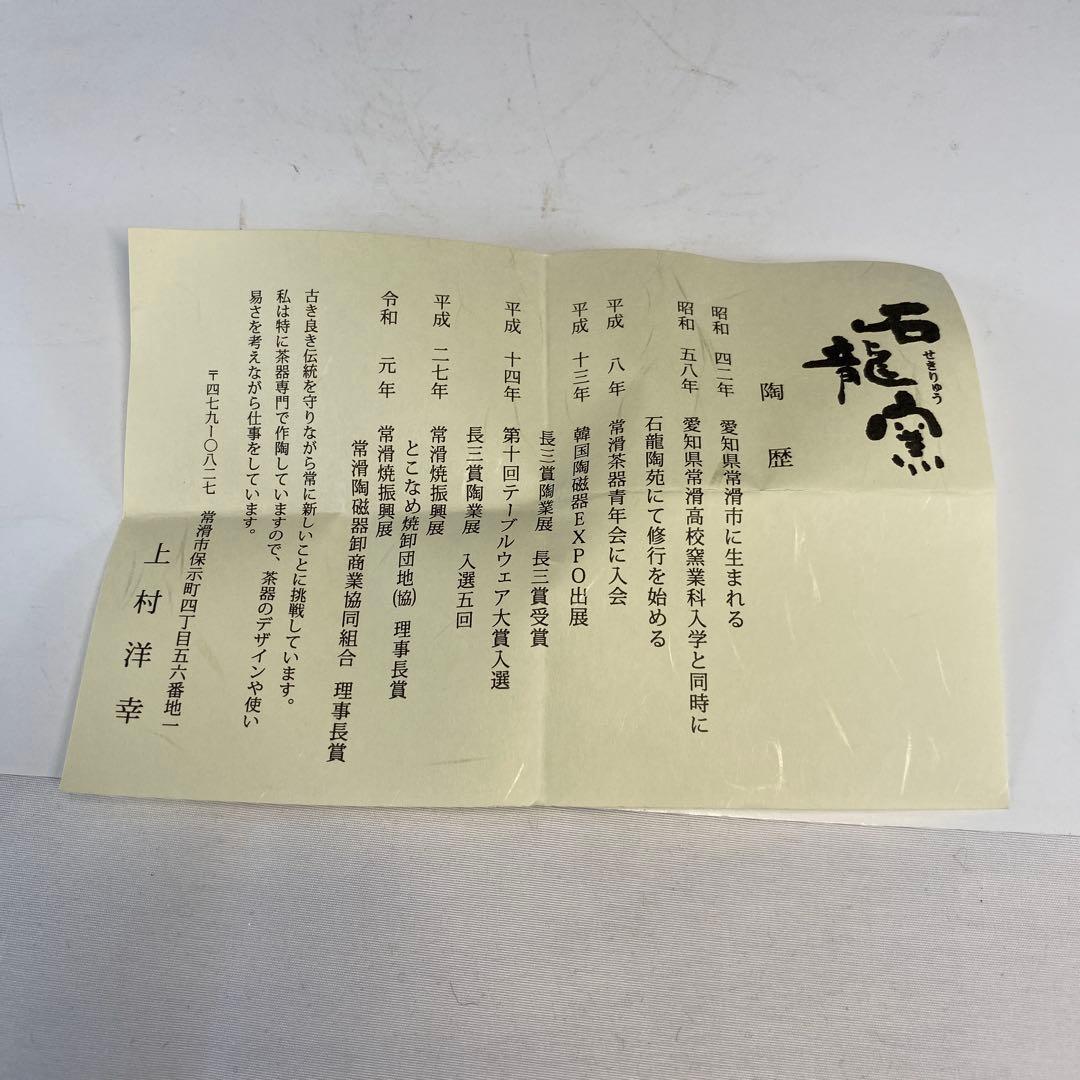 石龍窯
せきりゅう
陶歴
昭和 四二年 愛知県常滑市に生まれる
昭和 五八年 愛知県常滑高校窯業科入学と同時に
石龍陶苑にて修行を始める
平成 八年 常滑茶器青年会に入会
平成 十三年 韓国陶磁器EXPO出展
長三賞陶業展 長三賞受賞
平成 十四年 第十回テーブルウェア大賞入選
長三賞陶業展 入選五回
平成 二七年 常滑焼振興展
とこなめ焼卸団地(協) 理事長賞
令和 元年 常滑焼振興展
常滑陶磁器卸商業協同組合 理事長賞
古き良き伝統を守りながら常に新しいことに挑戦しています。
私は特に茶器専門で作陶していますので、茶器のデザインや使い
易さを考えながら仕事をしています。
〒四七九ー〇八二七 常滑市保示町四丁目五六番地一
上村洋幸